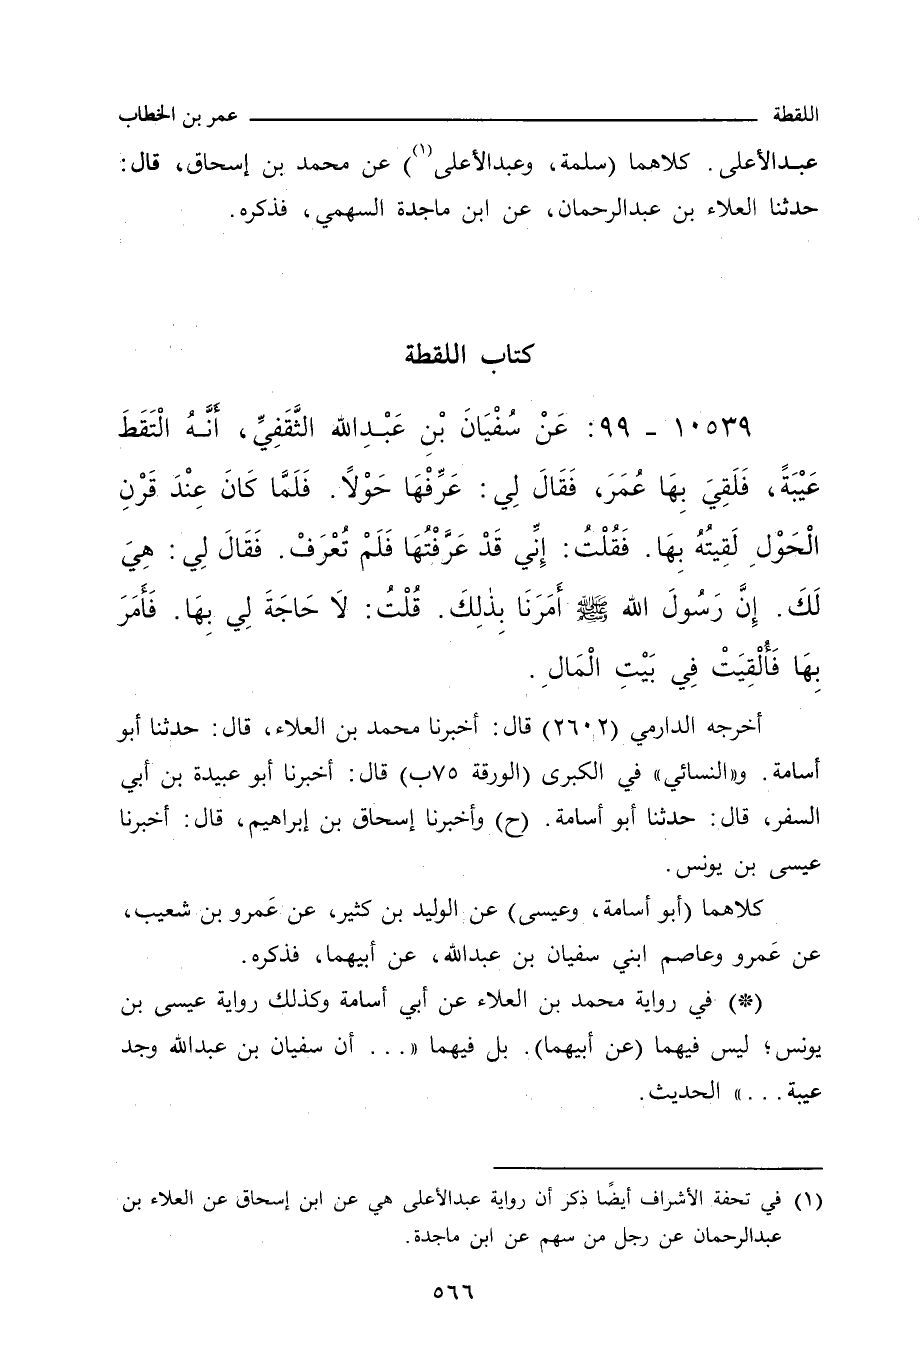 اللقطة ــــــــــــــــ عمر بن الخطاب
عبدالأعلى. كلاهما (سلمة، وعبدالأعلى(١)) عن محمد بن إسحاق، قال:
حدثنا العلاء بن عبدالرحمان، عن ابن ماجدة السهمي، فذكره.
كتاب اللقطة
١٠٥٣٩ ـ ٩٩: عَنْ سُفْيَانَ بْنِ عَبْدِالله الثَّقَفِيِّ، أَنَّهُ الْتَقَطَ
عَيْبَةً، فَلَقِيَ بِهَا عُمَرَ، فَقَالَ لِي: عَرِّفْهَا حَوْلاً. فَلَمَّا كَانَ عِنْدَ قَرْنِ
الْحَوْلِ لَقِيتُهُ بِهَا. فَقُلْتُ: إِنِّي قَدْ عَرَّفْتُهَا فَلَمْ تُعْرَفْ. فَقَالَ لِي: هِيَ
لَكَ. إِنَّ رَسُولَ الله ﷺ أَمَرَنَا بِذٰلِكَ. قُلْتُ: لَا حَاجَةَ لِي بِهَا. فَأَمَرَ
بِهَا فَأُلْقِيَتْ فِي بَيْتِ الْمَالِ.
أخرجه الدارمي (٢٦٠٢) قال: أخبرنا محمد بن العلاء، قال: حدثنا أبو
أسامة. و«النسائي» في الكبرى (الورقة ٧٥ب) قال: أخبرنا أبو عبيدة بن أبي
السفر، قال: حدثنا أبو أسامة. (ح) وأخبرنا إسحاق بن إبراهيم، قال: أخبرنا
عيسى بن يونس.
كلاهما (أبو أسامة، وعيسى) عن الوليد بن كثير، عن عَمرو بن شعيب،
عن عَمرو وعاصم ابني سفيان بن عبدالله، عن أبيهما، فذكره.
(*) في رواية محمد بن العلاء عن أبي أسامة وكذلك رواية عيسى بن
يونس؛ ليس فيهما (عن أبيهما). بل فيهما «... أن سفيان بن عبدالله وجد
عيبة ...» الحديث.
(١) في تحفة الأشراف أيضًا ذكر أن رواية عبدالأعلى هي عن ابن إسحاق عن العلاء بن
عبدالرحمان عن رجل من سهم عن ابن ماجدة.
٥٦٦